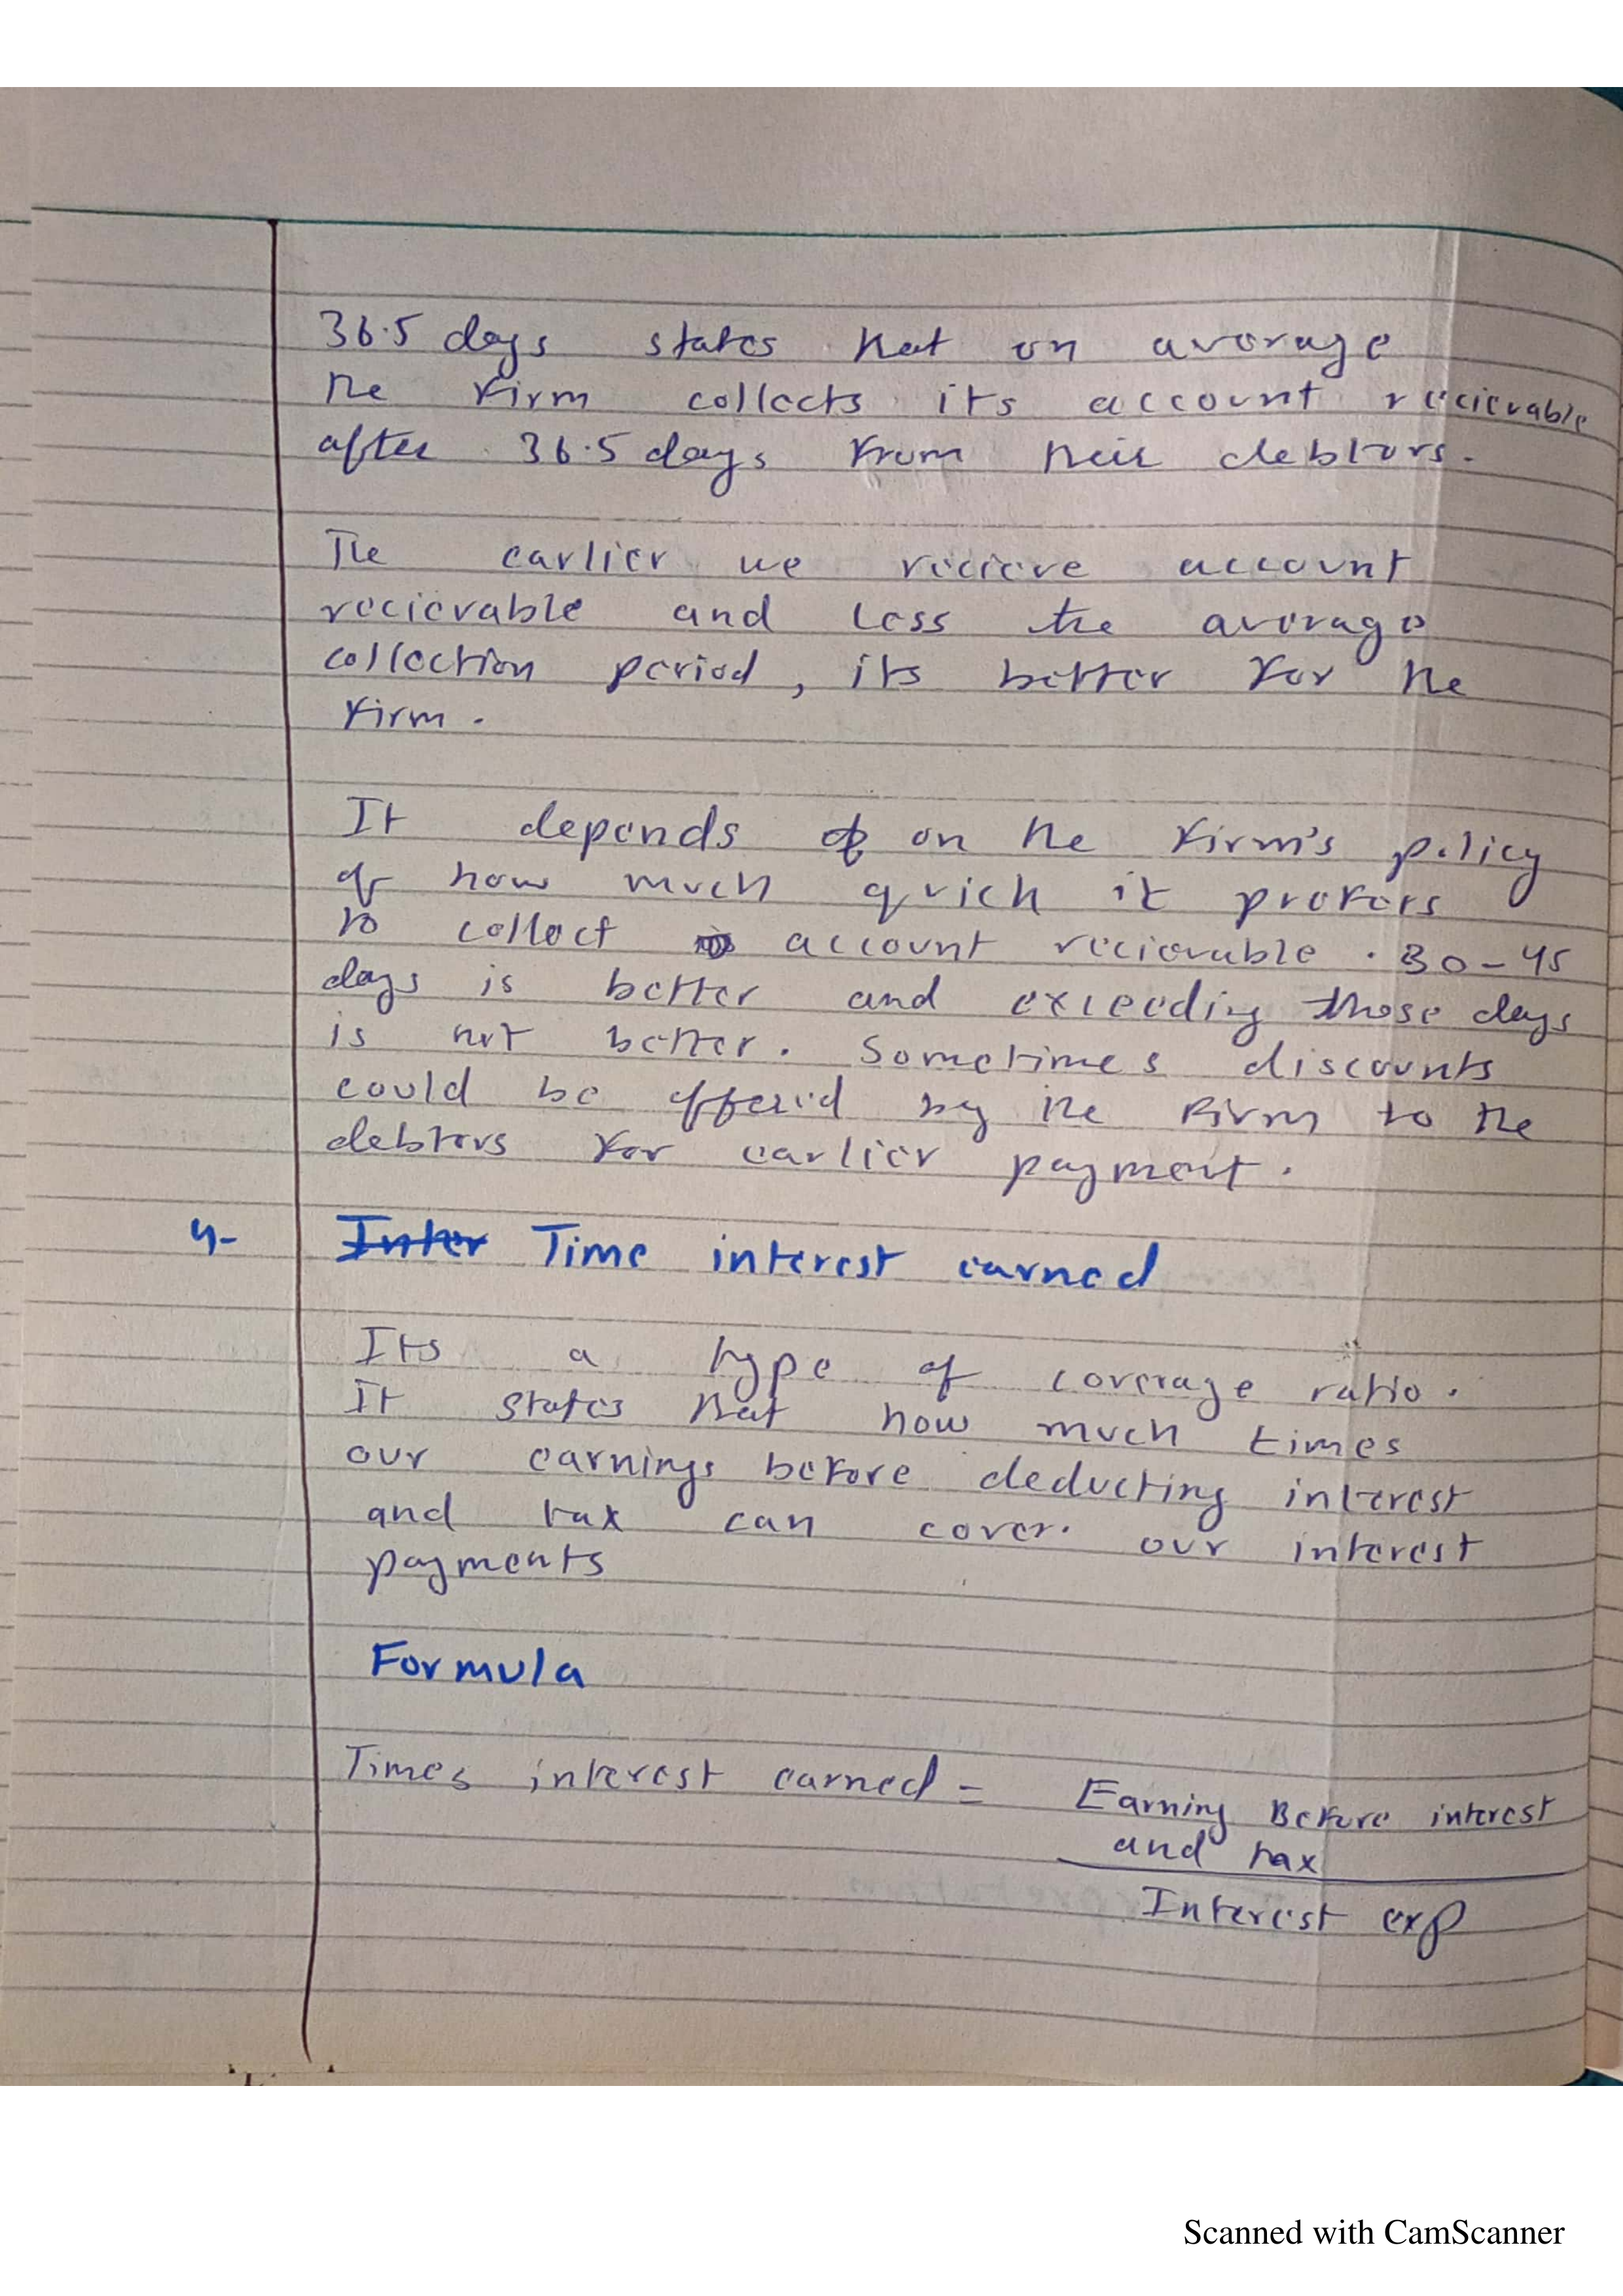 36.5 days states that on average
the firm collects its account recievable
after 36.5 days from their debtors.
The earlier we recieve account
recievable and less the average
collection period, its better for the
firm.
It depends of on the firm's policy
of how much quick it prefers
to collect account recievable. 30-45
days is better and exceeding those days
is not better. Sometimes discounts
could be offered by the firm to the
debtors for earlier payment.
4- Inter Time interest earned
Its a type of coverage ratio.
It states that how much times
our earnings before deducting interest
and tax can cover. our interest
payments
Formula
Times interest earned = Earning Before interest
and tax
Interest exp
Scanned with CamScanner